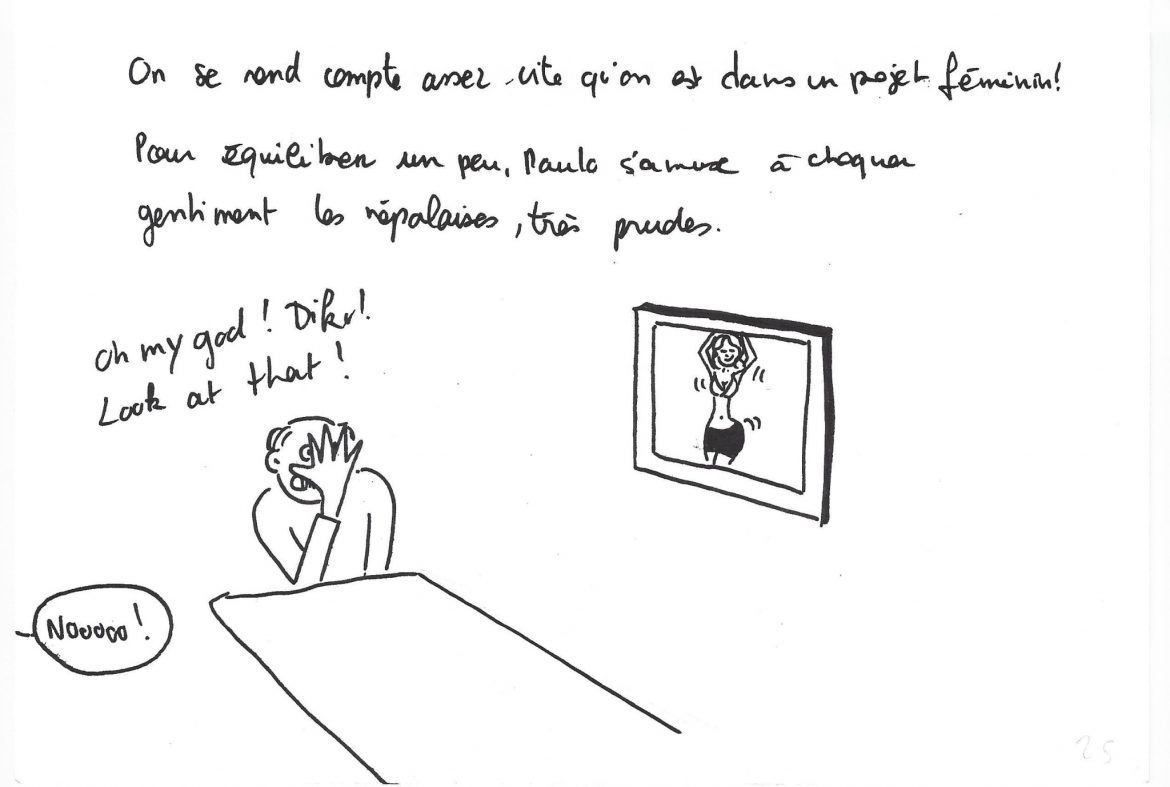 On se rend compte assez vite qu'on est dans un projet féminin!
Pour équilibrer un peu, Paulo s'amuse à choquer
gentiment les népalaises, très prudes.
Oh my god! Diku!
Look at that!
Nooooo!
25